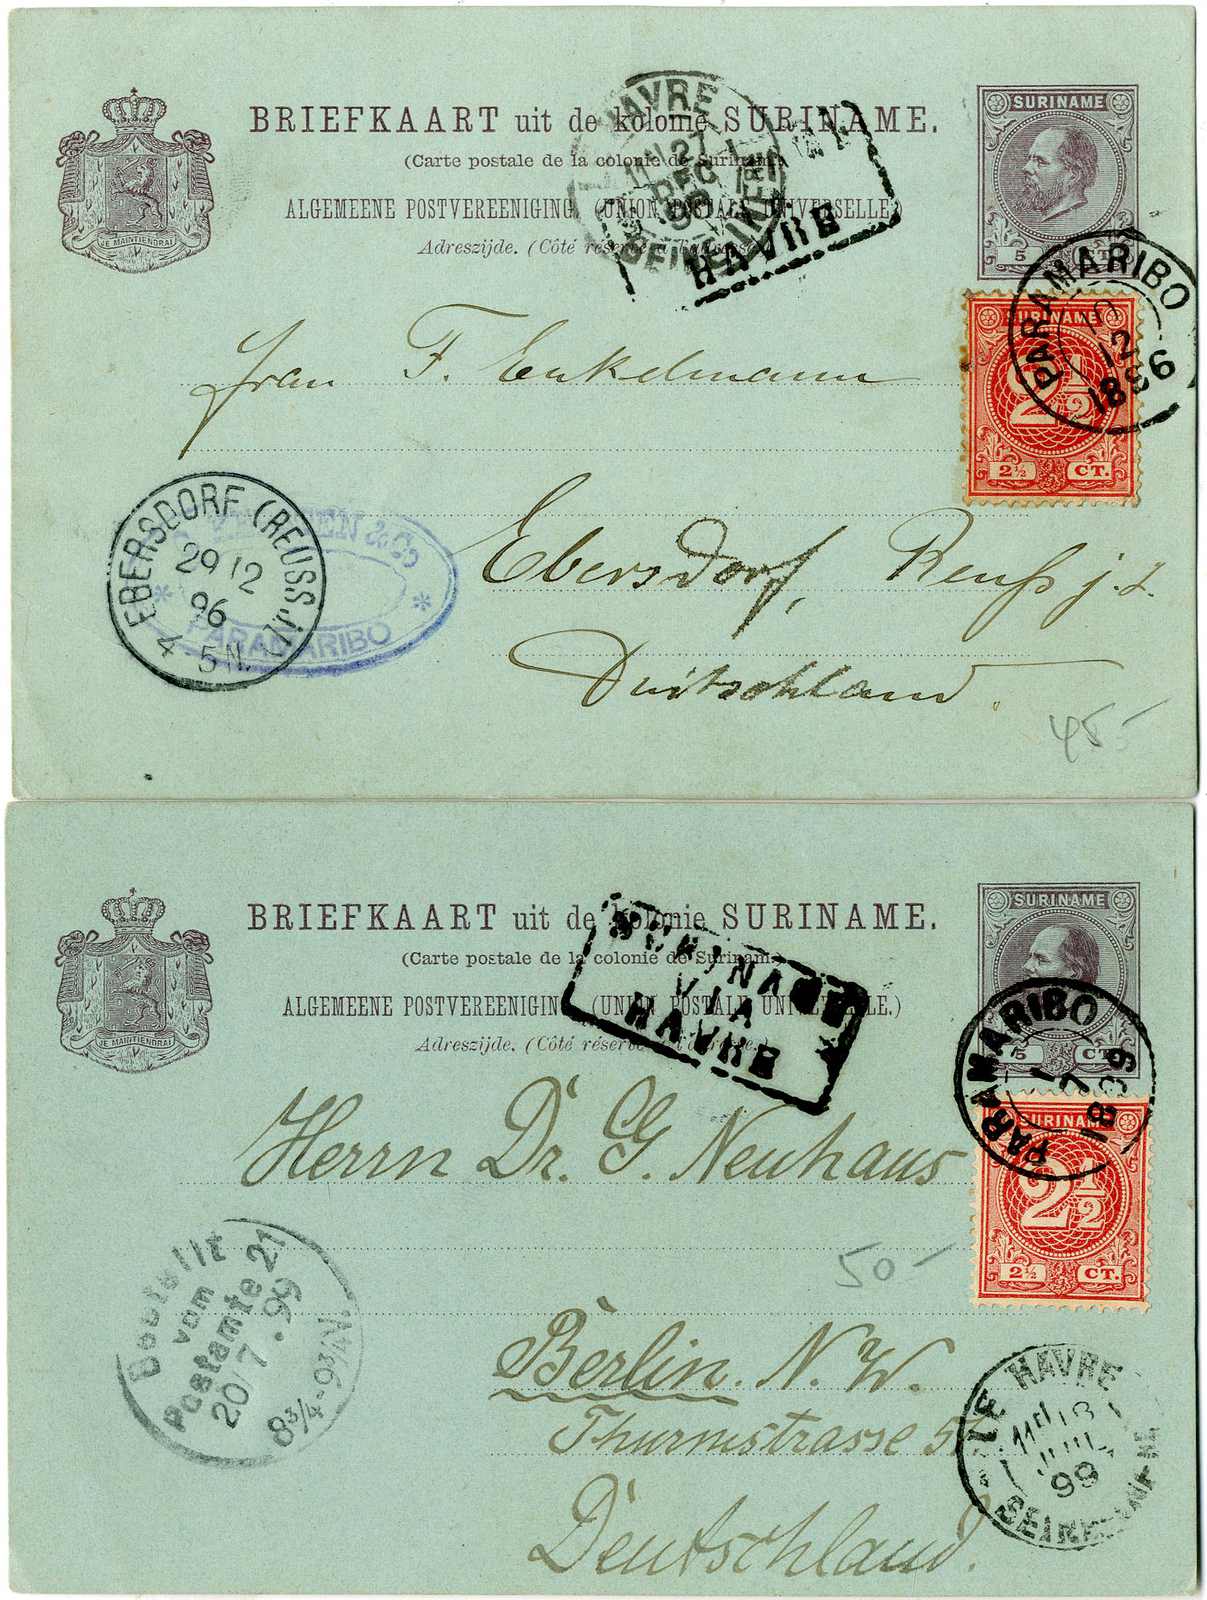 BRIEFKAART uit de kolonie SURINAME.
(Carte postale de la colonie de Surinam.)
ALGEMEENE POSTVEREENIGING (UNION POSTALE UNIVERSELLE.)
Adreszijde. (Côté réservé à l'adresse.)
JE MAINTIENDRAI
SURINAME
5 CT.
HAVRE
27
DEC
96
HAVRE
SURINAME
2½
2½ CT.
PARAMARIBO
10
12
1896
F. Enkelmann
Ebersdorf, Reuß j. L.
Duitschland.
EBERSDORF (REUSS. J.L.)
29 12
96
4 5 N.
& Co
PARAMARIBO
BRIEFKAART uit de kolonie SURINAME.
(Carte postale de la colonie de Surinam.)
ALGEMEENE POSTVEREENIGING (UNION POSTALE UNIVERSELLE.)
Adreszijde. (Côté réservé à l'adresse.)
JE MAINTIENDRAI
SURINAME
5 CT.
SURINAME
VIA
HAVRE
PARAMARIBO
1
7
1899
SURINAME
2½
2½ CT.
Herrn Dr. G. Neuhaus
50-
Berlin. N. W.
Thurmstrasse
Deutschland.
Bestellt
vom
Postamte 21
20/7.99
8¾-9¾V.
LE HAVRE
18
JUIL
99
SEINE